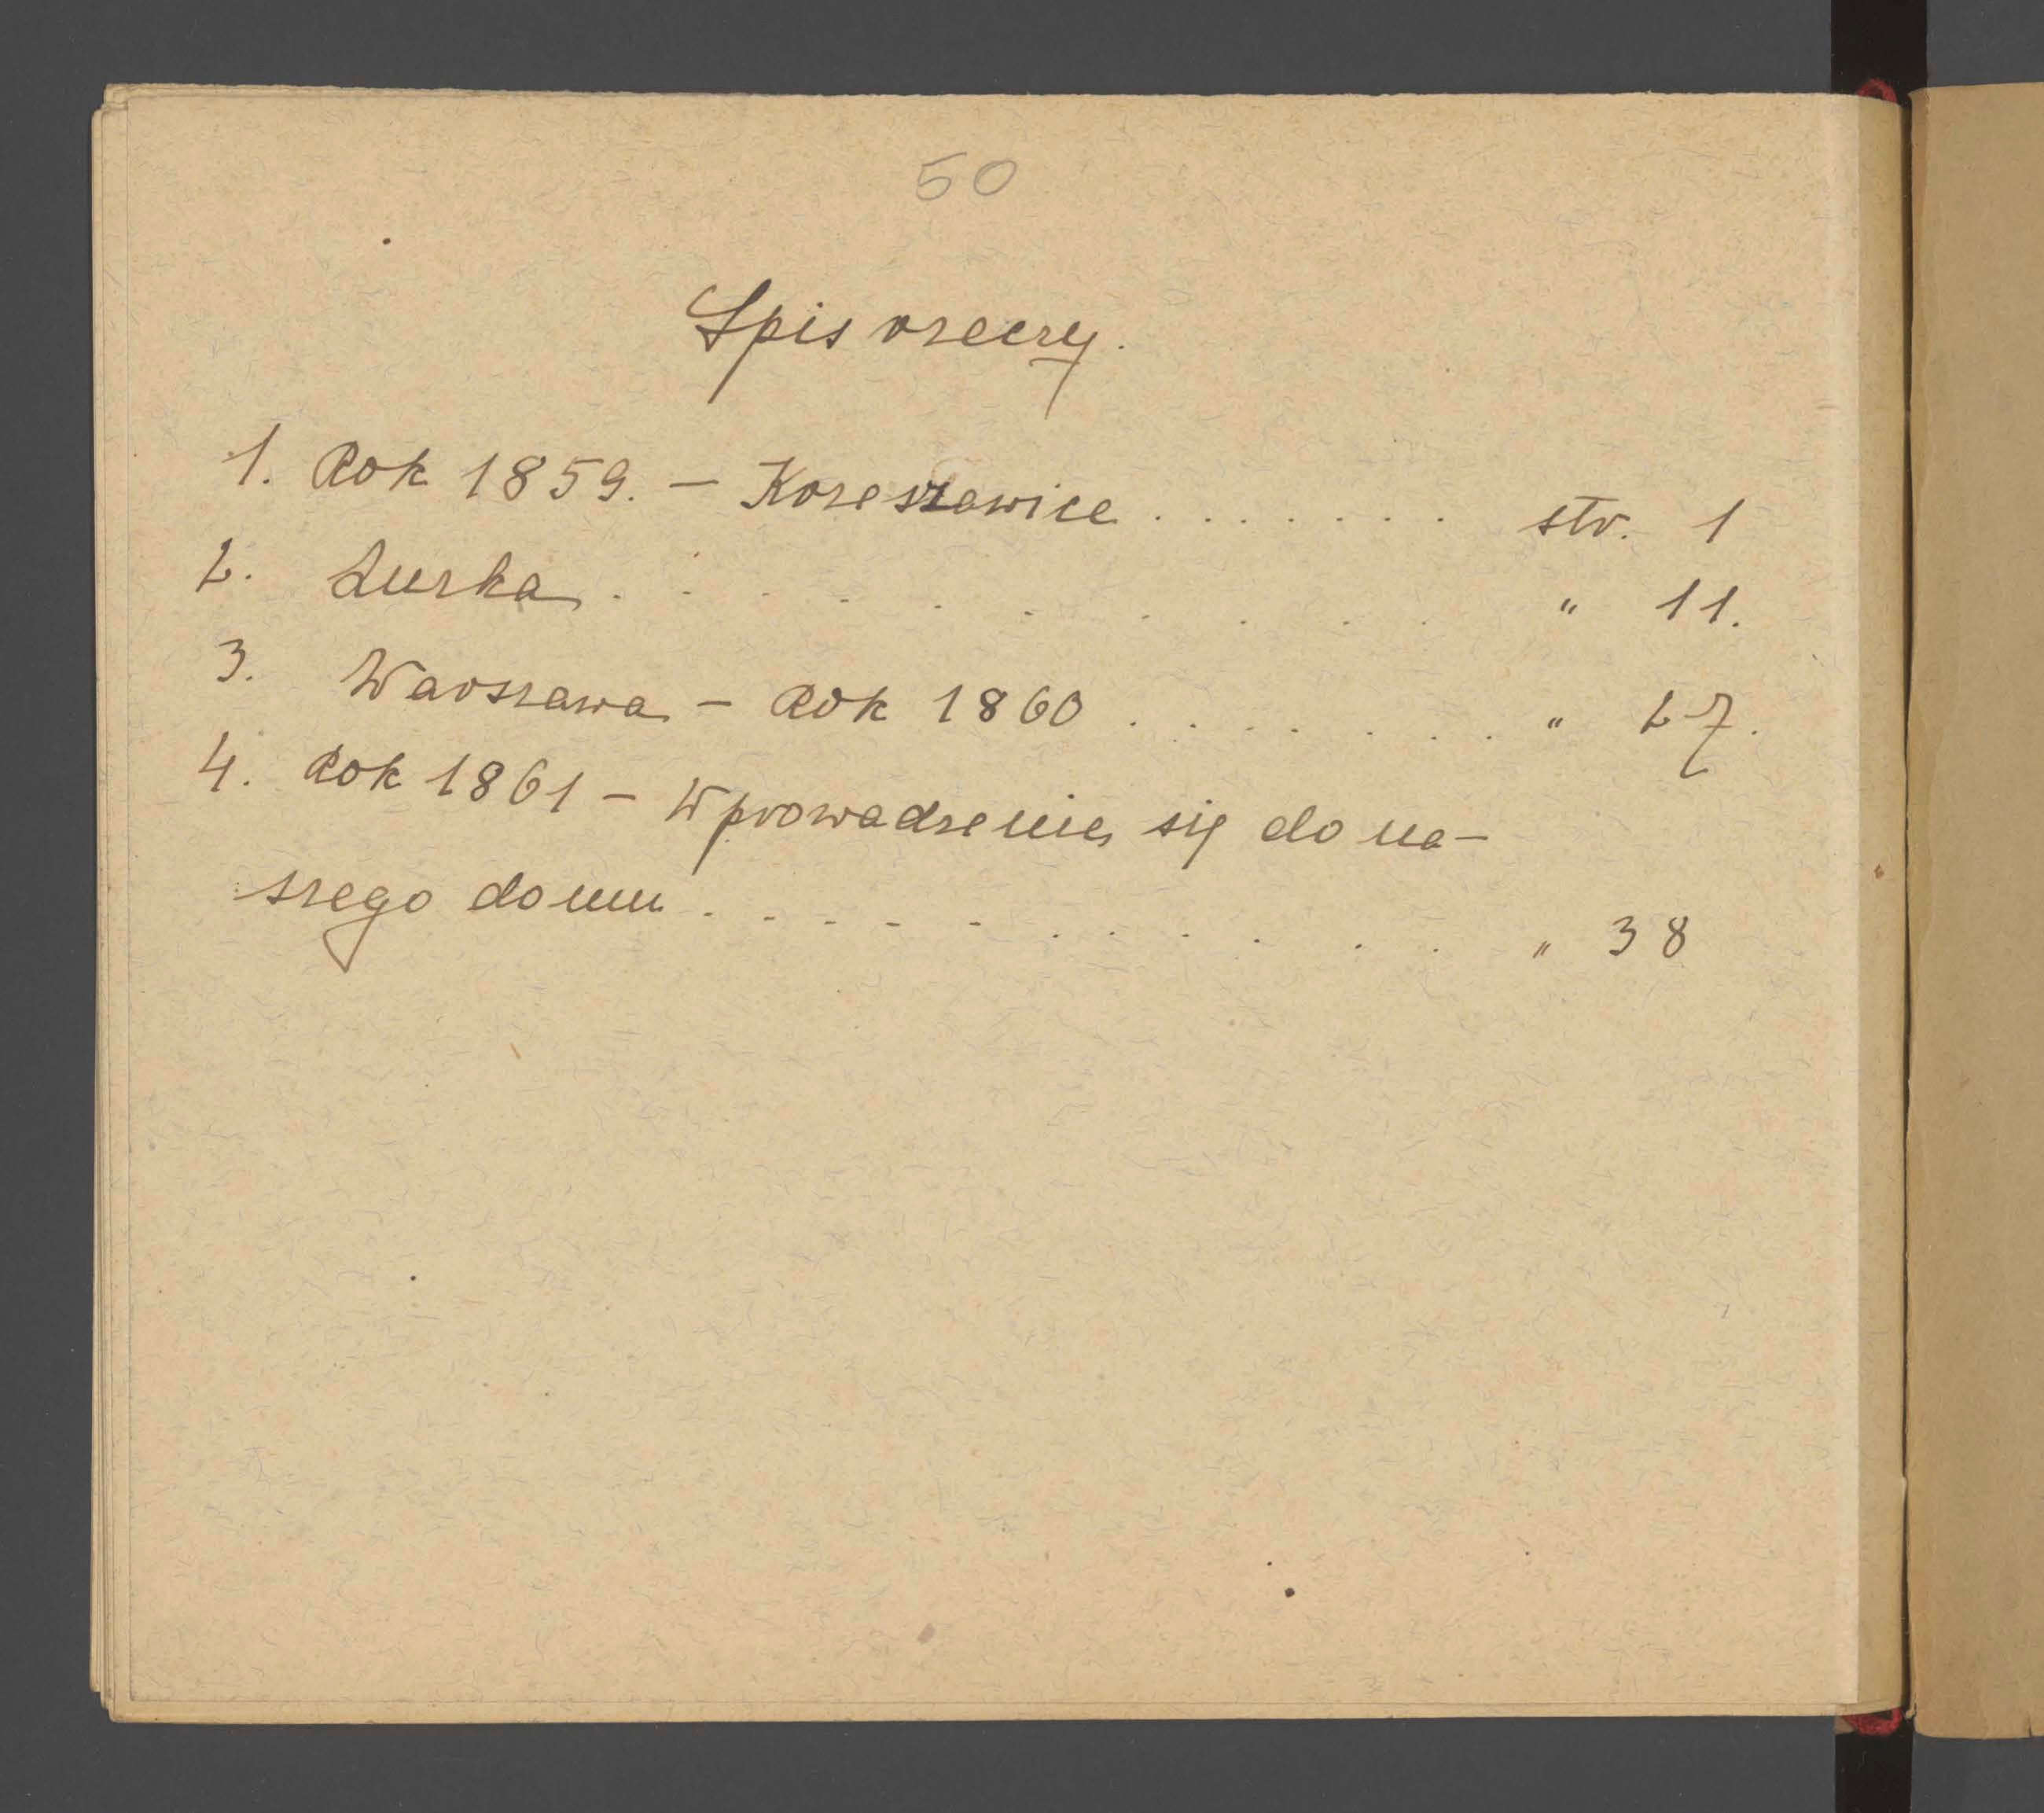 50
Spis rzeczy.
1. Rok 1859. – Kozeszawice . . . . . . . str. 1
2. Luzka . . . . . . . . . . " 11.
3. Warszawa – Rok 1860 . . . . . . . " 27.
4. Rok 1861 – Wprowadzenie się do na-
szego domu . . . . . . . . . . . " 38